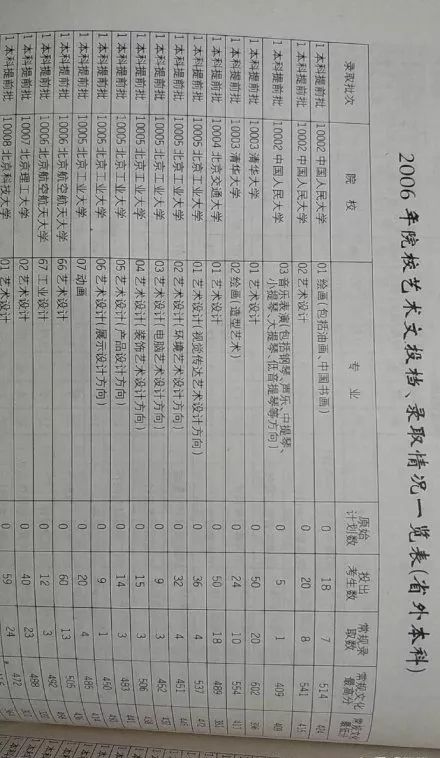 2006 年院校艺术文投档、录取情况一览表(省外本科)
录取批次 院 校 专 业 原始计划数 投出考生数 常规录取数 常规文化最高分
1 本科提前批 10002 中国人民大学 01 绘画(包括油画、中国书画) 0 18 7 514
1 本科提前批 10002 中国人民大学 02 艺术设计 0 20 8 541
1 本科提前批 10002 中国人民大学 03 音乐表演(包括钢琴、声乐、中提琴、小提琴、大提琴、低音提琴等方向) 0 5 1 409
1 本科提前批 10003 清华大学 01 艺术设计 0 50 20 602
1 本科提前批 10003 清华大学 02 绘画(造型艺术) 0 24 10 554
1 本科提前批 10004 北京交通大学 01 艺术设计 0 50 18 489
1 本科提前批 10005 北京工业大学 01 艺术设计(视觉传达艺术设计方向) 0 36 4 537
1 本科提前批 10005 北京工业大学 02 艺术设计(环境艺术设计方向) 0 32 4 451
1 本科提前批 10005 北京工业大学 03 艺术设计(电脑艺术设计方向) 0 9 3 452
1 本科提前批 10005 北京工业大学 04 艺术设计(装饰艺术设计方向) 0 15 3 506
1 本科提前批 10005 北京工业大学 05 艺术设计(产品设计方向) 0 14 3 483
1 本科提前批 10005 北京工业大学 06 艺术设计(展示设计方向) 0 9 1 450
1 本科提前批 10005 北京工业大学 07 动画 0 20 4 485
1 本科提前批 10006 北京航空航天大学 66 艺术设计 0 60 13 505
1 本科提前批 10006 北京航空航天大学 67 工业设计 0 12 3 492
1 本科提前批 10007 北京理工大学 02 艺术设计 0 40 23 488
1 本科提前批 10008 北京科技大学 01 艺术设计 0 59 24